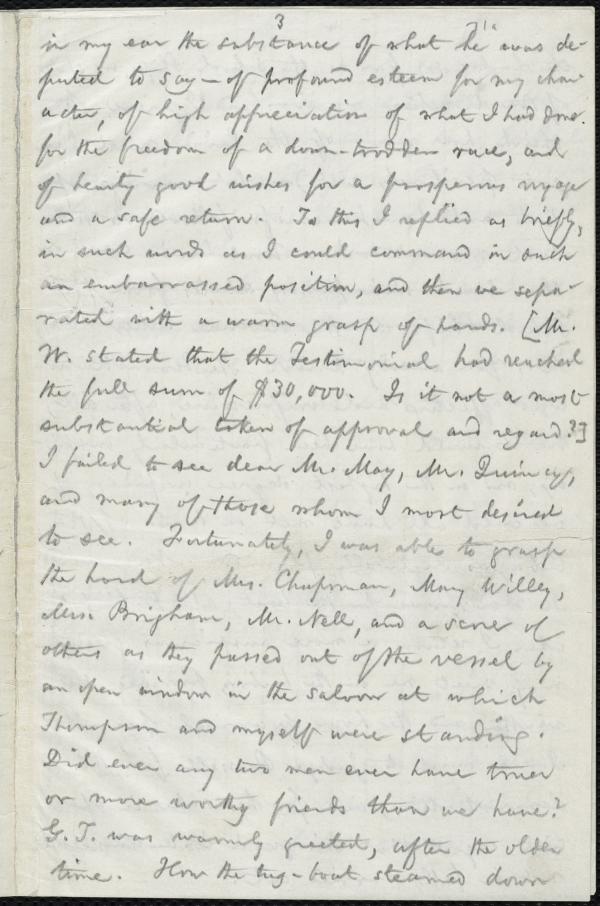 3
in my ear the substance of what he was de-
puted to say—of profound esteem for my char-
acter, of high appreciation of what I had done
for the freedom of a down-trodden race, and
of hearty good wishes for a prosperous voyage
and a safe return. To this I replied as briefly,
in such words as I could command in such
an embarrassed position, and then we sepa-
rated with a warm grasp of hands. [Mr.
W. stated that the Testimonial had reached
the full sum of $30,000. Is it not a most
substantial token of approval and regard?]
I failed to see dear Mr. May, Mr. Quincy,
and many of those whom I most desired
to see. Fortunately, I was able to grasp
the hand of Mrs. Chapman, Mary Willey,
Mrs. Brigham, Mr. Nell, and a score of
others as they passed out of the vessel by
an open window in the saloon at which
Thompson and myself were standing.
Did ever any two men ever have truer
or more worthy friends than we have?
G. T. was warmly greeted, after the olden
time. How the tug-boat steamed down